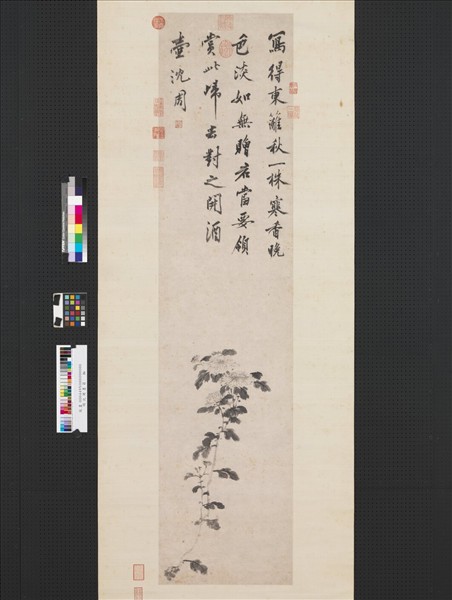 寫得東籬秋一株寒香晚
色淡如無贈君當要領
賞此歸去對之開酒
壺沈周